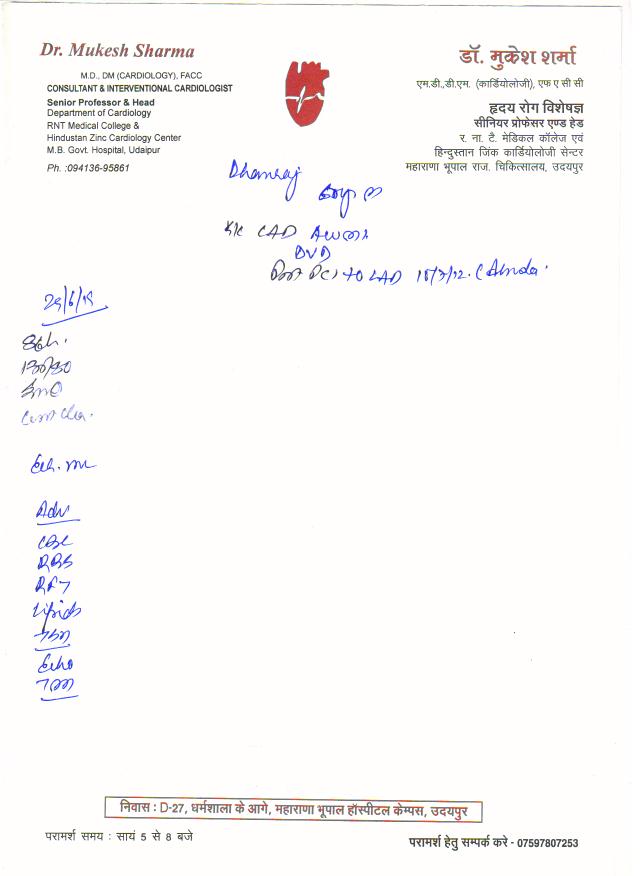 Dr. Mukesh Sharma
M.D., DM (CARDIOLOGY), FACC
CONSULTANT & INTERVENTIONAL CARDIOLOGIST
Senior Professor & Head
Department of Cardiology
RNT Medical College &
Hindustan Zinc Cardiology Center
M.B. Govt. Hospital, Udaipur
Ph. :094136-95861
डॉ. मुकेश शर्मा
एम.डी.,डी.एम. (कार्डियोलोजी), एफ ए सी सी
हृदय रोग विशेषज्ञ
सीनियर प्रोफेसर एण्ड हेड
र. ना. टै. मेडिकल कॉलेज एवं
हिन्दुस्तान जिंक कार्डियोलोजी सेन्टर
महाराणा भूपाल राज. चिकित्सालय, उदयपुर
Dhanraj
K/c CAD AWMI
DVD
Post PCI to LAD
Adv
CBC
RBS
RFT
Lipids
Echo
निवास : D-27, धर्मशाला के आगे, महाराणा भूपाल हॉस्पीटल केम्पस, उदयपुर
परामर्श समय : सायं 5 से 8 बजे
परामर्श हेतु सम्पर्क करे - 07597807253